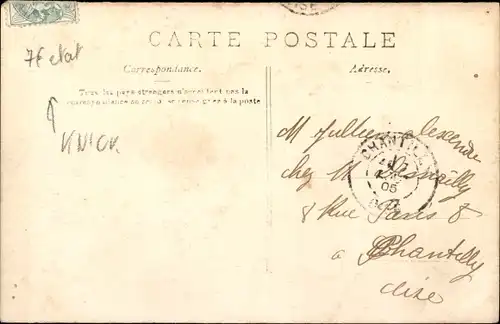 7 etat
CARTE POSTALE
Correspondance.
Adresse.
Tous les pays étrangers n'acceptent pas la
correspondance au recto se renseigner à la poste
KNICK
M Jullien Alexendre
chez M
8 Rue Paris 8
CHANTILLY
05
OISE
a Chantilly
Oise